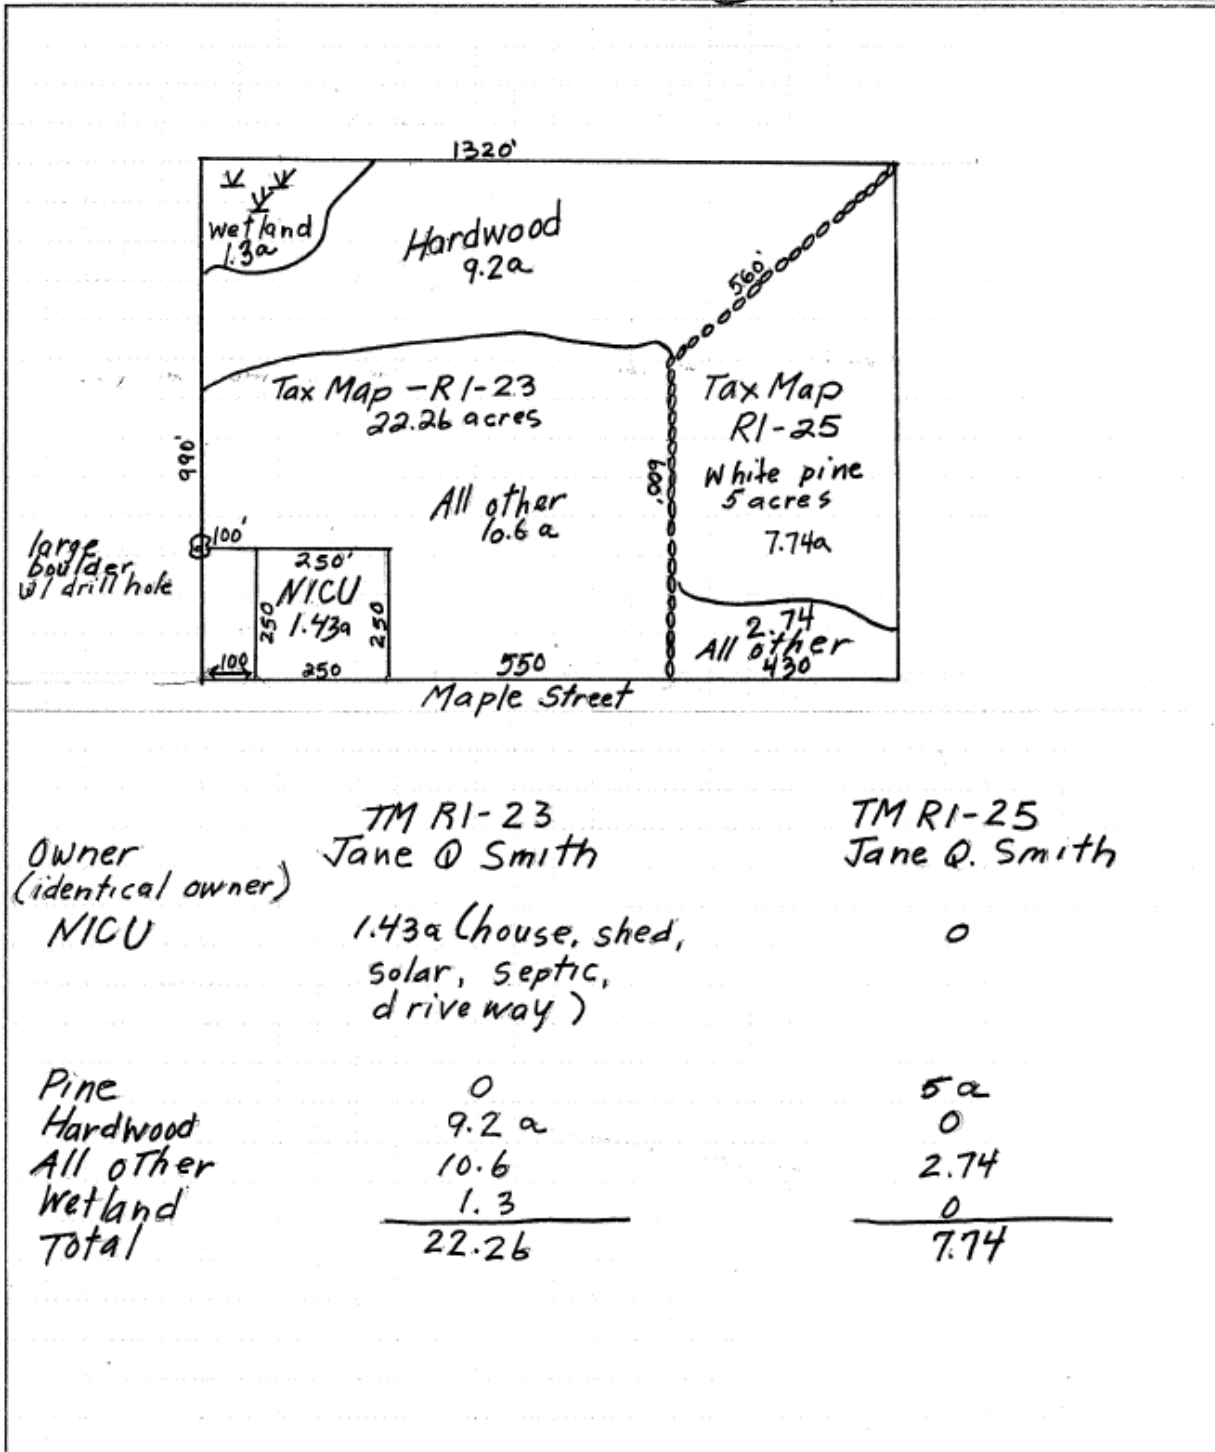 1320'
wetland
1.3a
Hardwood
9.2a
560'
Tax Map - R1-23
22.26 acres
Tax Map
R1-25
White pine
5 acres
7.74a
990'
600'
All other
10.6 a
large
boulder
w/ drill hole
100'
250'
NICU
1.43a
250
250
100
250
550
2.74
All other
430
Maple Street
TM R1-23
TM R1-25
Owner
Jane Q Smith
Jane Q. Smith
(identical owner)
NICU
1.43a (house, shed,
0
solar, septic,
driveway)
Pine
0
5a
Hardwood
9.2 a
0
All other
10.6
2.74
Wetland
1.3
0
Total
22.26
7.74